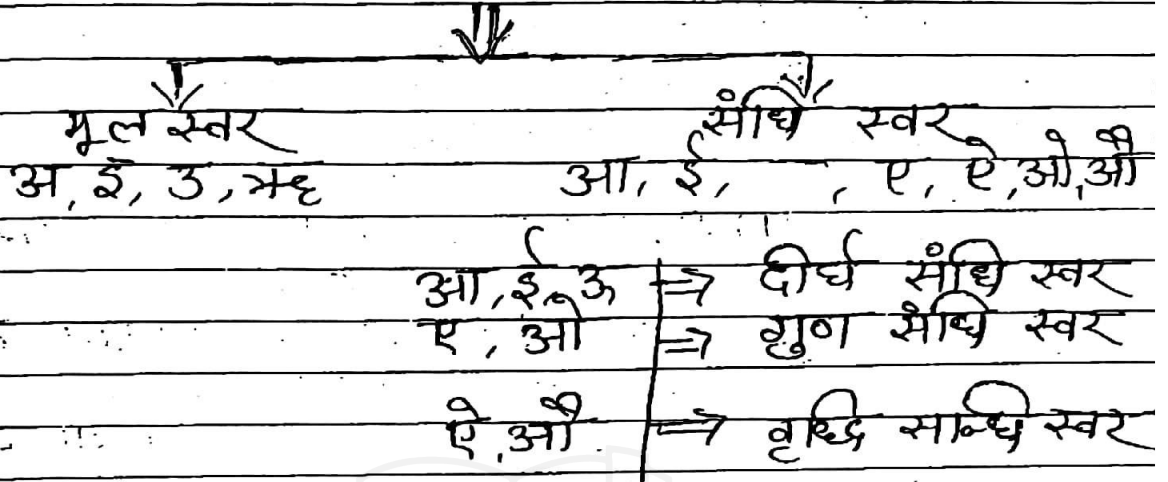 मूल स्वर संधि स्वर
अ, इ, उ, ऋ आ, ई, , ए, ऐ, ओ, औ
आ, ई, ऊ ⇒ दीर्घ संधि स्वर
ए, ओ ⇒ गुण संधि स्वर
ऐ, औ ⇒ वृद्धि सन्धि स्वर